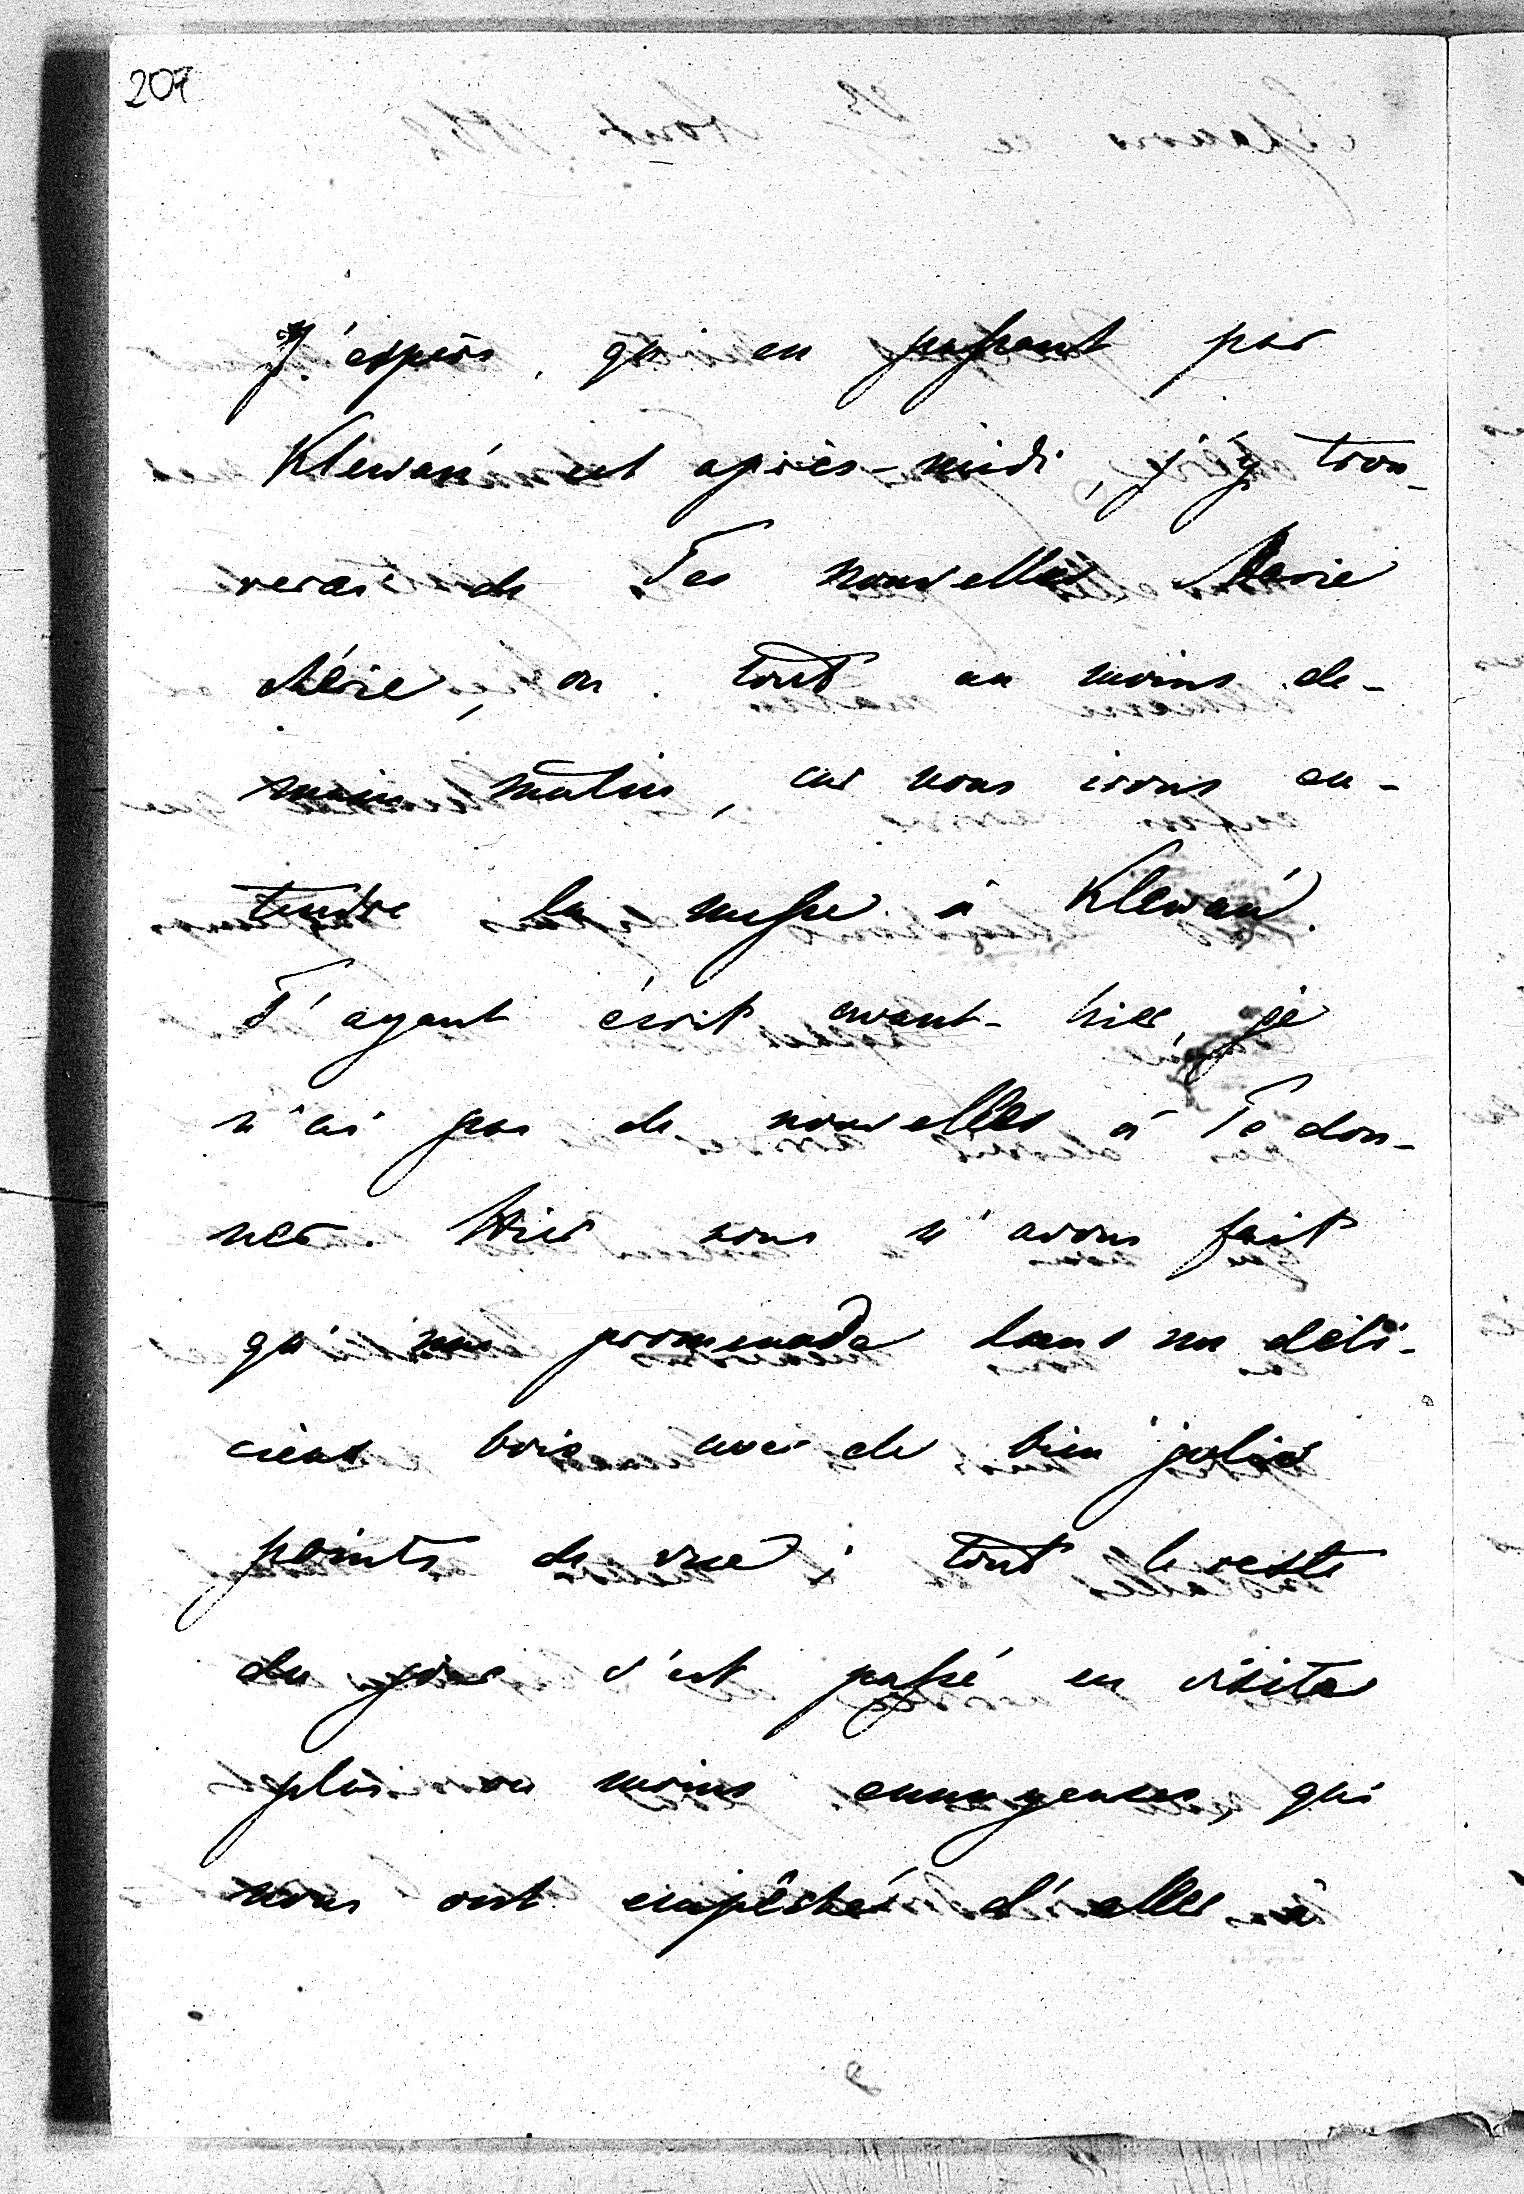 207
J'espère, qu'en passant par
Klewań cet après-midi, j'y trou-
verai de Tes nouvelles, Marie
chérie, ou tout au moins de-
main matin, car nous irons en-
tendre la messe à Klewań.
T'ayant écrit avant-hier, je
n'ai pas de nouvelles à Te don-
ner. Hier nous n'avons fait
qu'une promenade dans un déli-
cieux bois avec de bien jolies
points de vue; tout le reste
du jour s'est passé en visites
plus ou moins ennuyeuses, qui
nous ont empêchés d'aller à